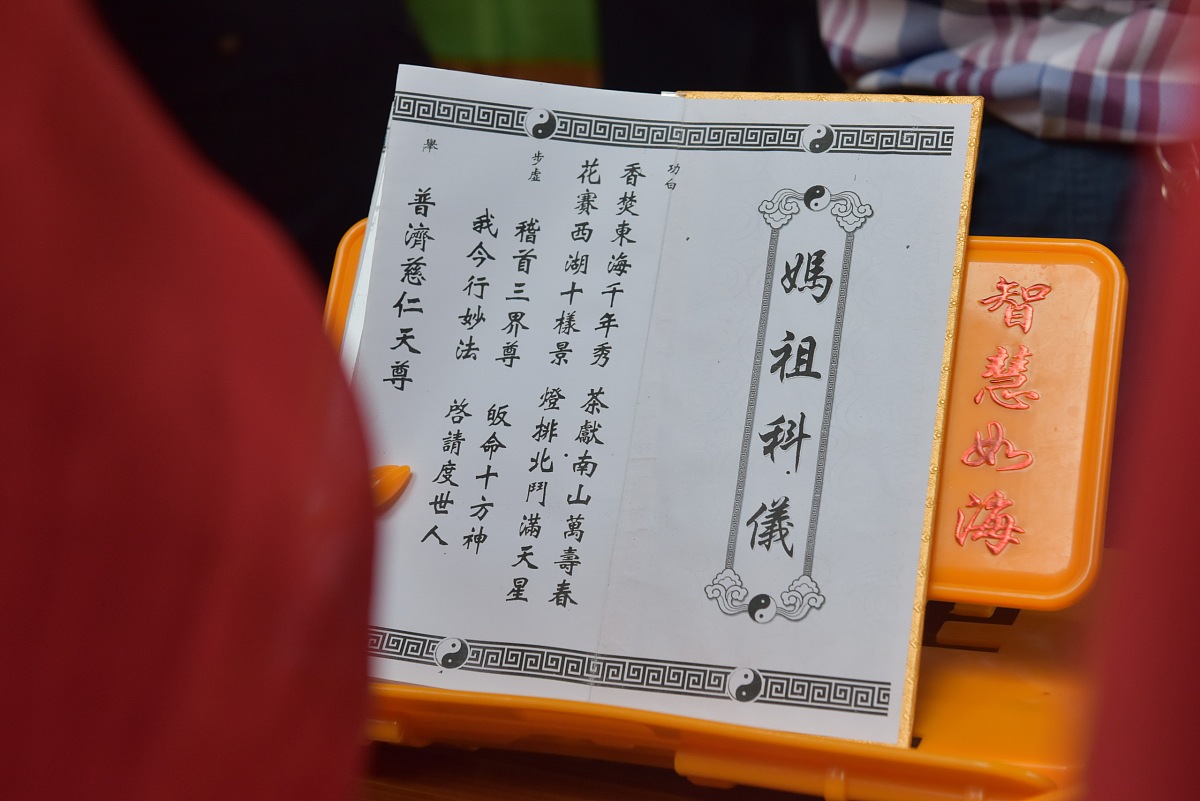 智慧如海
媽祖科儀
功白
香焚東海千年秀 茶獻南山萬壽春
花賽西湖十樣景 燈排北鬥滿天星
步虛
稽首三界尊 皈命十方神
我今行妙法 啓請度世人
舉
普濟慈仁天尊